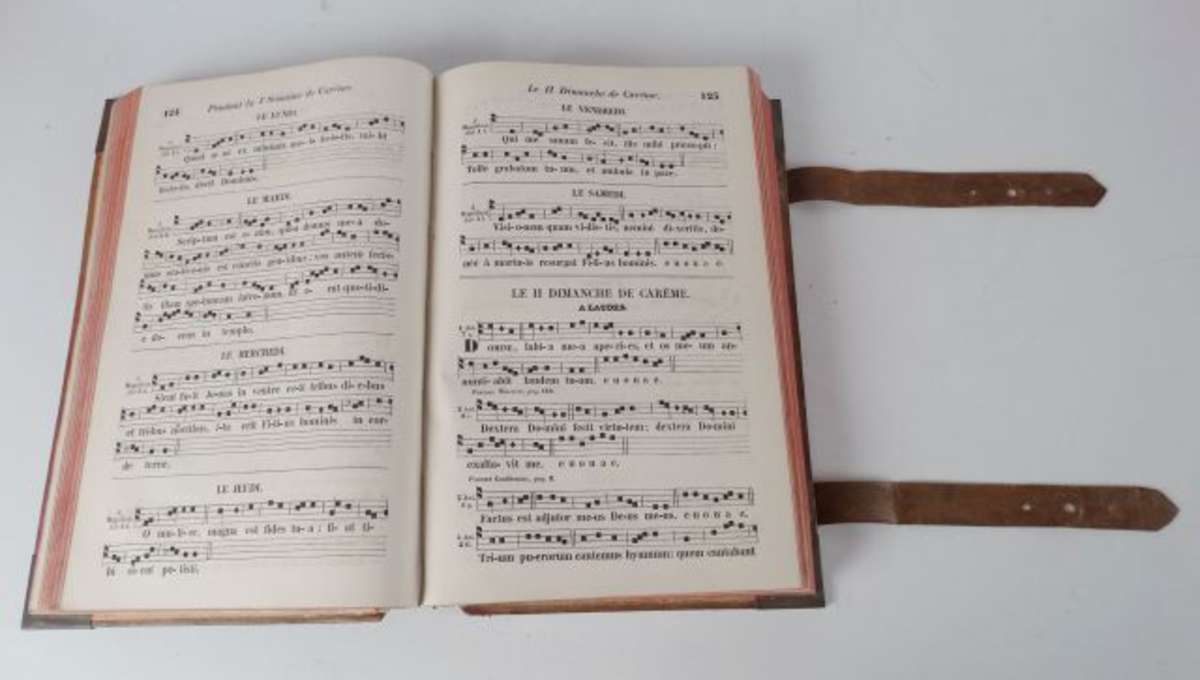 124 Pendant la I Semaine de Carême.
LE LUNDI.
Quod u ni ex minimis me-is fecis-tis, mi-hi
fecis-tis, dicit Dominus.
LE MARDI.
Scrip-tum est e-nim, quia domus me-a do-
mus ora-ti-o-nis est cunctis gen-tibus; vos autem fecis-
tis illam spe-luncam latro-num. Et e- rat quo-ti-di-
e do- cens in templo.
LE MERCREDI.
Sicut fu-it Jo-nas in ventre ce-ti tribus di- e-bus
et tri-bus noctibus, i-ta erit Fi-li-us hominis in cor-
de terræ.
LE JEUDI.
O mu-li-er, magna est fides tu-a : fi- at ti-
bi si-cut pe-tisti.
Le II Dimanche de Carême. 125
LE VENDREDI.
Qui me sanum fe- cit, ille mihi præce-pit :
Tolle grabatum tu-um, et ambula in pace.
LE SAMEDI.
Visi-o-nem quam vidis-tis, nemini di-xeritis, do-
nec à mortu-is resurgat Fi-li-us hominis. e u o u a e.
LE II DIMANCHE DE CARÊME.
A LAUDES.
Domine, labi-a me-a ape-ri-es, et os me- um an-
nunti-abit laudem tu-am. e u o u a e.
Dextera Do-mini fecit virtu-tem; dextera Do-mini
exalta- vit me. e u o u a e.
Factus est adjutor me-us De-us me-us. e u o u a e.
Tri-um pu-erorum cantemus hymnum; quem cantabant